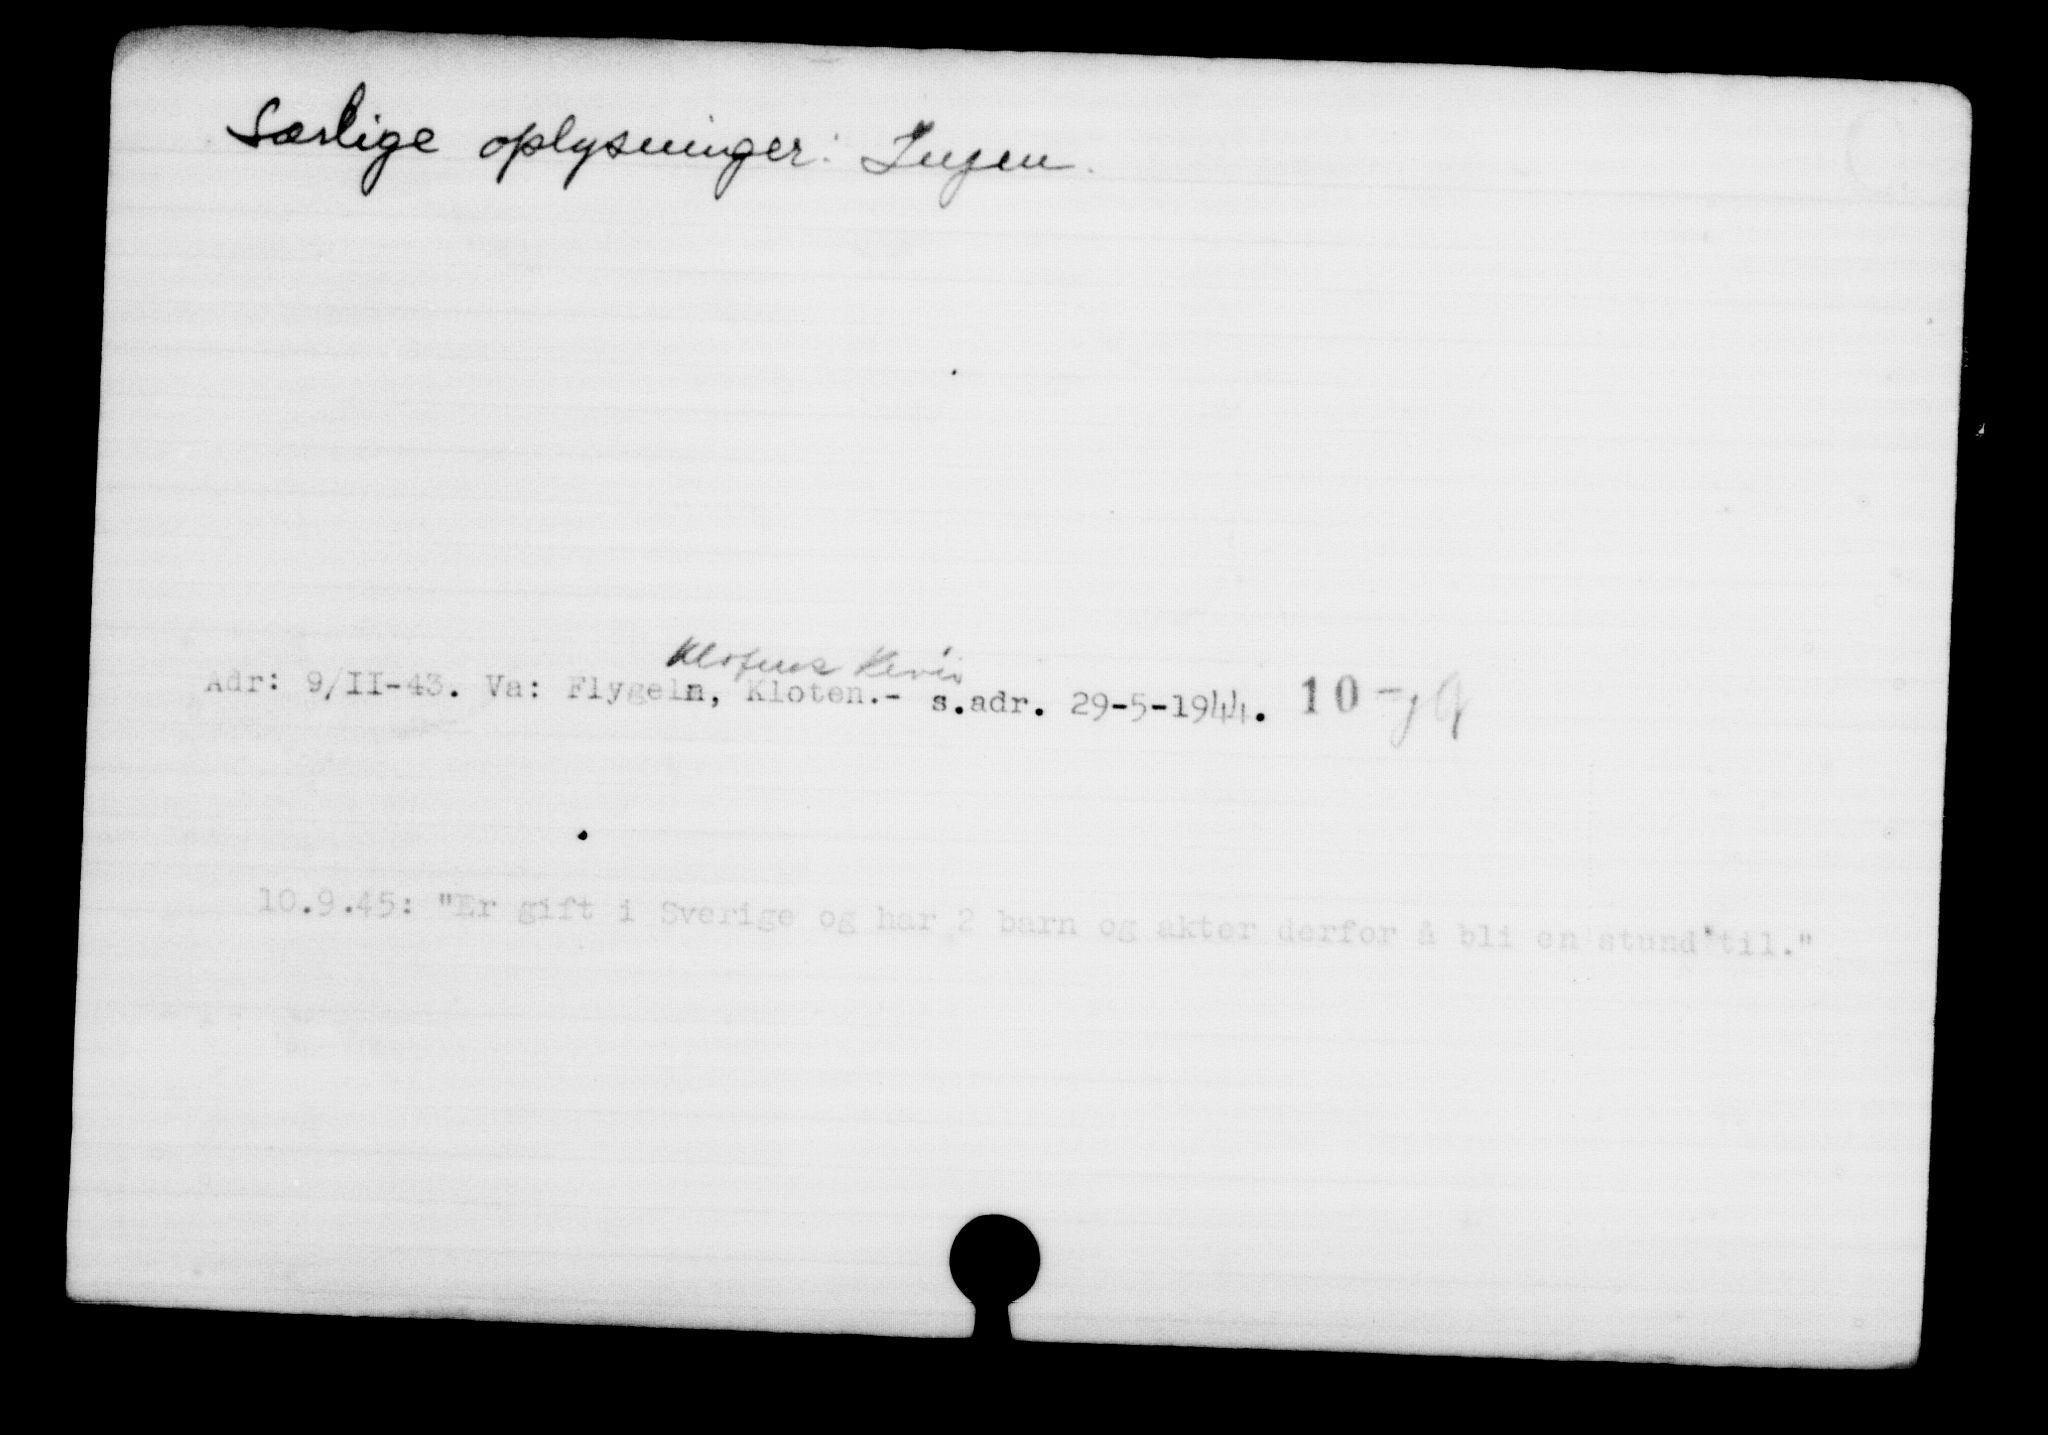 Særlige oplysninger: Ingen.
Klotens Revir
Adr: 9/II-43. Va: Flygeln, Kloten.- s.adr. 29-5-1944. 10-
10.9.45: "Er gift i Sverige og har 2 barn og akter derfor å bli en stund til."